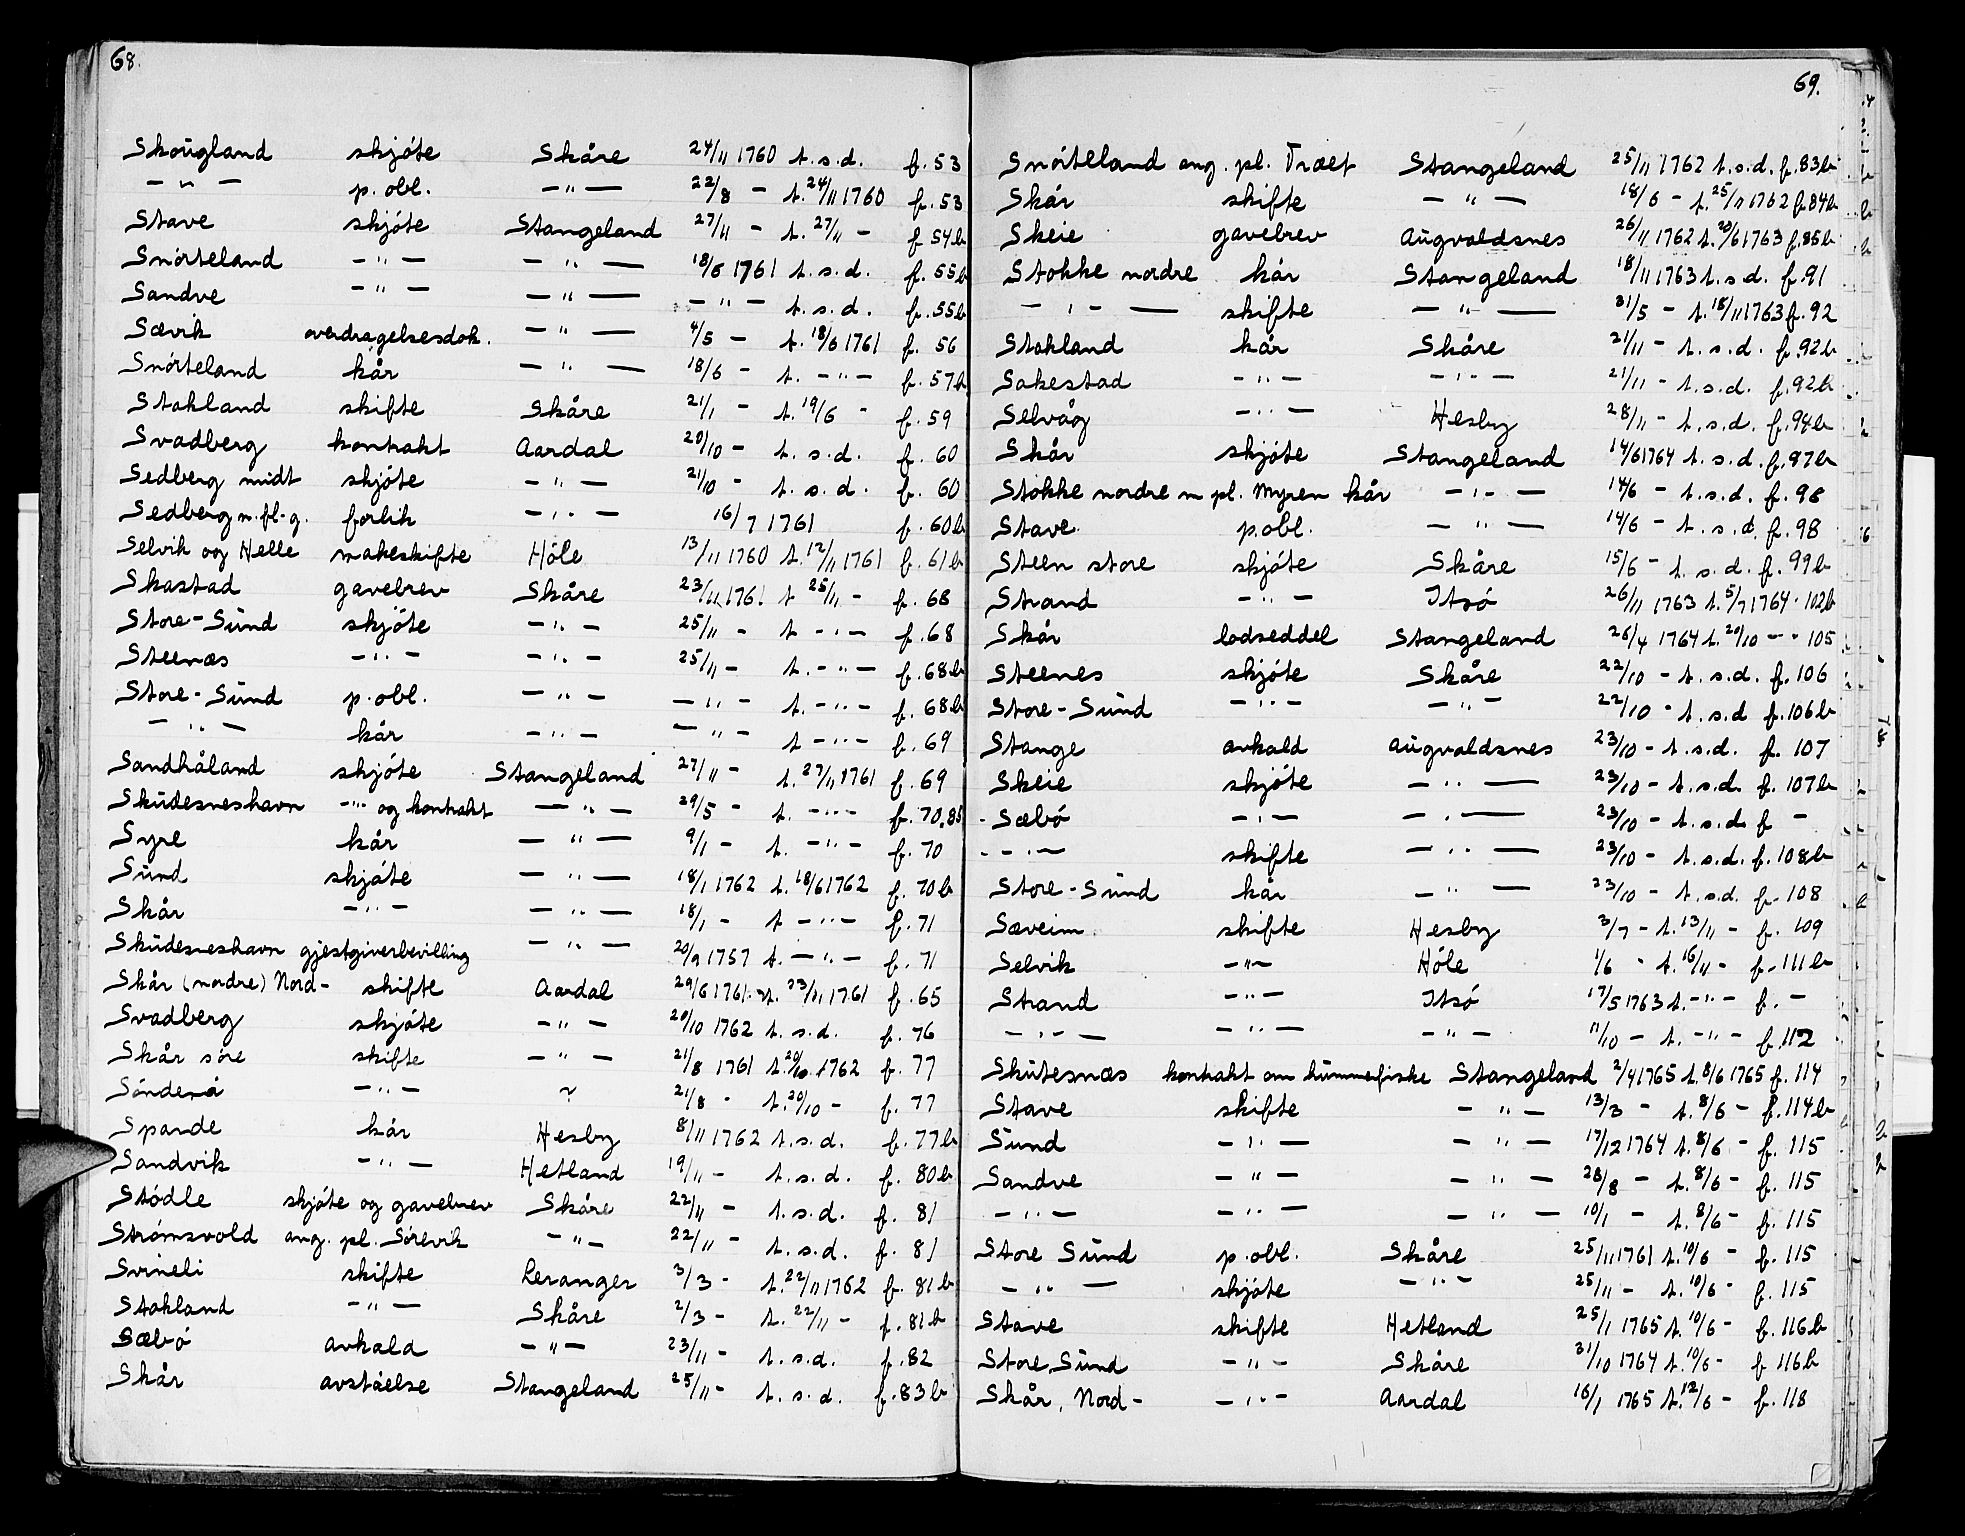 68.
Skougland skjöte Skåre 24/11 1760 t.s.d. f. 53
— " — p. obl. — " — 22/8 — t. 24/11 1760 f. 53
Stave skjöte Stangeland 27/11 — t. 27/11 — f. 54b
Snörteland — " — — " — 18/6 1761 t.s.d. f. 55b
Sandve — " — — " — — " — t.s.d. f. 55b
Sævik overdragelsesdok. — " — 4/5 — t. 18/6 1761 f. 56
Snörteland kår — " — 18/6 — t. — " — f. 57b
Stakland skifte Skåre 21/1 — t. 19/6 — f. 59
Svadberg kontrakt Aardal 20/10 — t.s.d. f. 60
Sedberg midt skjöte — " — 21/10 — t.s.d. f. 60
Sedberg m.fl.g. forlik — " — 16/7 1761 f. 60b
Selvik og Helle makeskifte Höle 13/11 1760 t. 12/11 1761 f. 61b
Skastad gavebrev Skåre 23/11 1761 t 25/11 — f. 68
Store-Sund skjöte — " — 25/11 — t — " — f. 68
Steenæs — " — — " — 25/11 — t. — " — f. 68b
Store-Sund p. obl. — " — — " — t. — " — f. 68b
— " — kår — " — — " — t — " — f. 69
Sandhåland skjöte Stangeland 27/11 — t. 27/11 1761 f. 69
Skudesneshavn — " — og kontrakt — " — 29/5 — t. — " — f. 70,85
Syre kår — " — 9/1 — t. — " — f. 70
Sund skjöte — " — 18/1 1762 t. 18/6 1762 f. 70b
Skår — " — — " — 18/1 — t — " — f. 71
Skudesneshavn gjestgiverbevilling — " — 20/9 1757 t. — " — f. 71
Skår (nordre) Nord- skifte Aardal 29/6 1761 t. 23/11 1761 f. 65
Svadberg skjöte — " — 20/10 1762 t.s.d. f. 76
Skår söre skifte — " — 21/8 1761 t. 20/10 1762 f. 77
Sönderå — " — ~ 21/8 — t. 20/10 — f. 77
Spande kår Hesby 8/11 1762 t.s.d. f. 77b
Sandvik — " — Hetland 19/11 — t.s.d. f. 80b
Stödle skjöte og gavebrev Skåre 22/11 — t.s.d. f. 81
Strømsvold ang. pl. Sörevik — " — 22/11 — t.s.d. f. 81
Svineli skifte Leranger 3/3 — t. 22/11 1762 f. 81b
Stakland — " — Skåre 2/3 — t. 22/11 — f. 81b
Sæbö avkald — " — 23/11 — t.s.d. f. 82
Skår avståelse Stangeland 25/11 — t.s.d. f. 83b
69.
Snörteland ang. pl. Træet Stangeland 25/11 1762 t.s.d. f. 83b
Skår skifte — " — 18/6 — t. 25/11 1762 f. 84b
Skeie gavebrev Augvaldsnes 26/11 1762 t. 20/6 1763 f. 85b
Stokke nordre kår Stangeland 18/11 1763 t.s.d. f. 91
— " — skifte — " — 31/5 — t. 18/11 1763 f. 92
Stakland kår Skåre 21/11 — t.s.d. f. 92b
Sakestad — " — — " — 21/11 — t.s.d. f. 92b
Selvåg — " — Hesby 28/11 — t.s.d. f. 94b
Skår skjöte Stangeland 14/6 1764 t.s.d. f. 97b
Stokke nordre m pl. Myren kår — " — 14/6 — t.s.d. f. 98
Stave p. obl. — " — 14/6 — t.s.d. f. 98
Steen store skjöte Skåre 15/6 — t.s.d. f. 99b
Strand — " — Itsö 26/11 1763 t. 5/7 1764 · 102b
Skår lodseddel Stangeland 26/4 1764 t. 20/10 — · 105
Steenes skjöte Skåre 22/10 — t.s.d. f. 106
Store-Sund — " — — " — 22/10 — t.s.d f. 106b
Stange avkald Augvaldsnes 23/10 — t.s.d. f. 107
Skeie skjöte — " — 23/10 — t.s.d. f. 107b
Sæbö — " — — " — 23/10 — t.s.d. f —
— " — skifte — " — 23/10 — t.s.d. f. 108b
Store-Sund kår — " — 23/10 — t.s.d. f. 108
Sæveim skifte Hesby 3/7 — t. 13/11 — f. 109
Selvik — " — Höle 1/6 — t. 16/11 — f. 111b
Strand — " — Itsö 17/5 1763 t. — " — f. —
— " — — " — — " — 11/10 — t. — " — f. 112
Skutesnæs kontrakt om hummerfiske Stangeland 2/4 1765 t. 8/6 1765 f. 114
Stave skifte — " — 13/3 — t. 8/6 — f. 114b
Sund — " — — " — 17/12 1764 t. 8/6 — f. 115
Sandve — " — — " — 28/8 — t. 8/6 — f. 115
— " — — " — — " — 10/1 — t. 8/6 — f. 115
Store Sund p. obl. Skåre 25/11 1761 t. 10/6 — f. 115
— " — skjöte — " — 25/11 — t. 10/6 — f. 115
Stave skifte Hetland 25/1 1765 t. 10/6 — f. 116b
Store Sund — " — Skåre 31/10 1764 t. 10/6 — f 116b
Skår, Nord- — " — Aardal 16/1 1765 t. 12/6 — f. 118